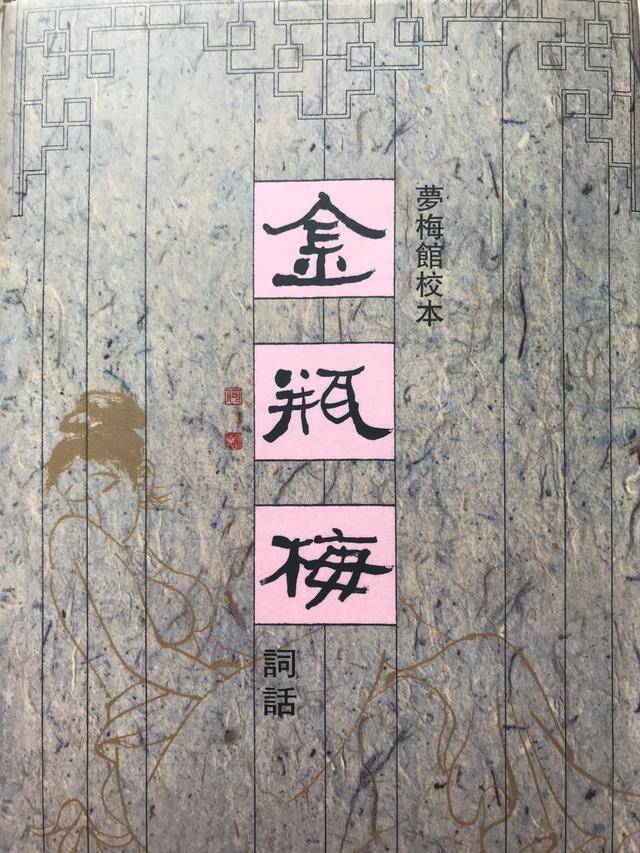 夢梅館校本
金瓶梅
詞話